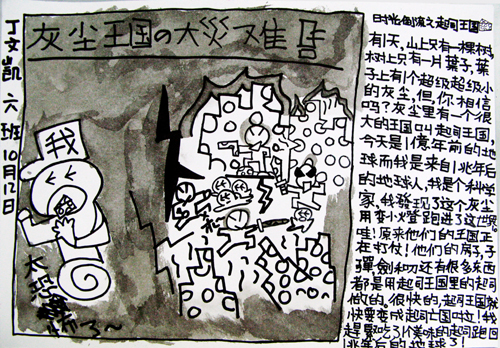 丁文凱 六班 10月12日
灰尘王国の大災难
我
太
了~
时光倒流之起司王国
有一天,山上只有一棵树,
树上只有一片葉子,葉
子上有个超级超级小
的灰尘,但,你相信
吗?灰尘里有一个很
大的王国叫起司王国,
今天是1億年前的地
球而我是来自1兆年后
的地球人,我是个科学
家,我發现了这个灰尘
用变小燈跑進了这世界。
哇!原来他们的王国正
在打仗!他们的房子,
彈,劍和刀还有很多东西
都是用起司王国里的起司
做的。很快的,起司王国就
快要变成起司亡国啦!我
趕緊吃了个美味的起司跑回
兆年后的地球了!